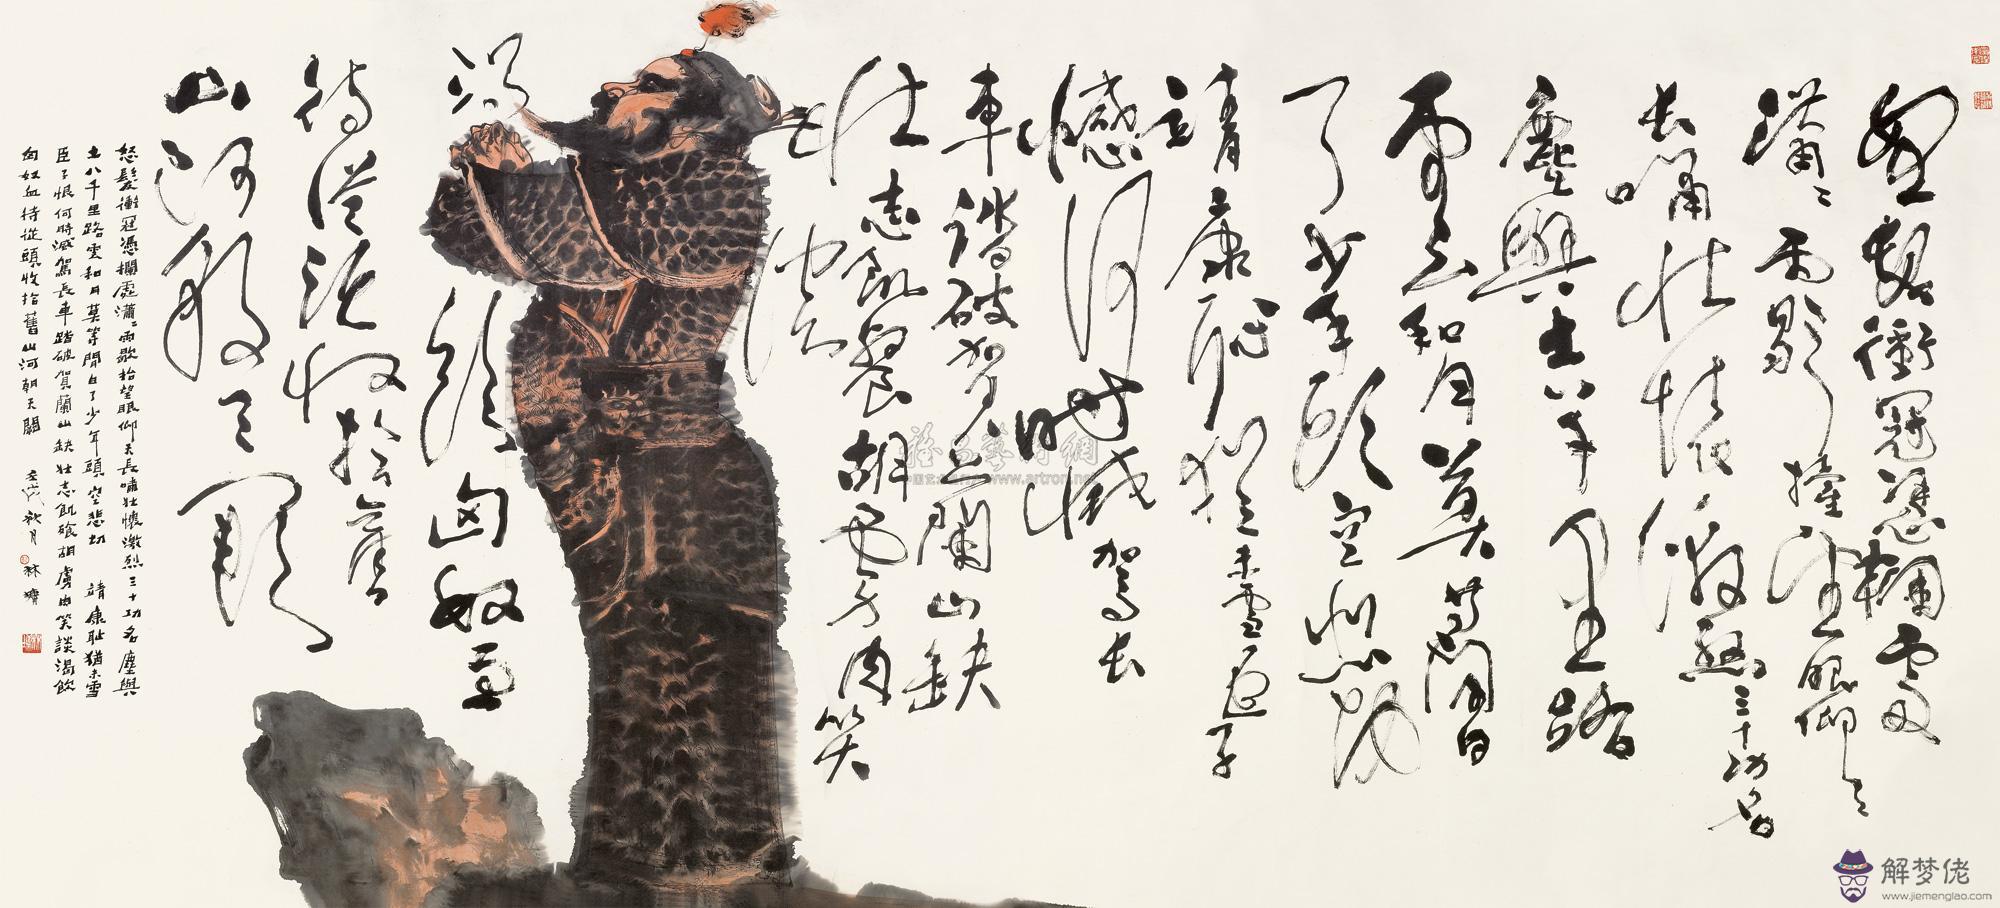 怒髮衝冠憑欄處
瀟〻雨歇擡望眼仰天
長嘯壯懷激烈三十功名
塵與土八千里路
雲和月莫等閒白
了少年頭空悲切
靖康恥猶未雪臣子
憾何時滅駕長
車踏破賀蘭山缺
壯志飢餐胡虜肉笑
談
渴飲匈奴血
待從頭收拾舊
山河朝天闕
怒髮衝冠憑欄處瀟〻雨歇抬望眼仰天長嘯壯懷激烈三十功名塵與
土八千里路雲和月莫等閒白了少年頭空悲切 靖康耻猶未雪
臣子恨何時滅駕長車踏破賀蘭山缺壯志飢飡胡虜肉笑談渴飲
匈奴血待從頭收拾舊山河朝天闕 秋月 林墉
www.artron.net
解梦佬
www.jiemenglao.com